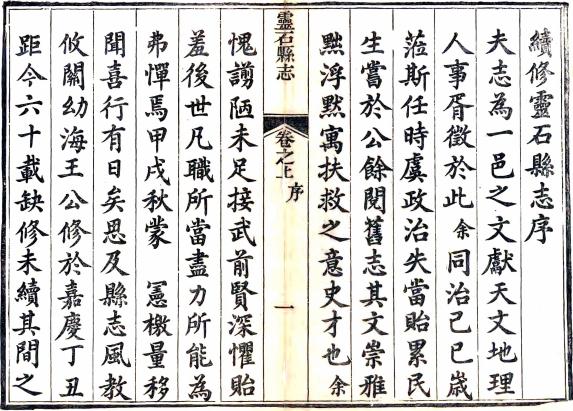 續修靈石縣志序
夫志為一邑之文獻天文地理
人事胥徵於此余同治己巳歲
蒞斯任時虞政治失當貽累民
生嘗於公餘閱舊志其文崇雅
黜浮默寓扶救之意史才也余
靈石縣志
卷之上 序
一
愧謭陋未足接武前賢深懼貽
羞後世凡職所當盡力所能為
弗憚焉甲戌秋蒙 憲檄量移
聞喜行有日矣思及縣志風教
攸關幼海王公修於嘉慶丁丑
距今六十載缺修未續其間之